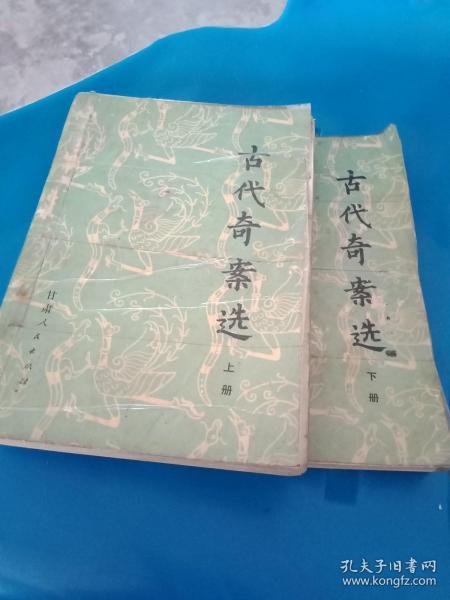 古代奇案选
上册
甘肃人民出版社
古代奇案选
下册
孔夫子旧书网
www.kongfz.com